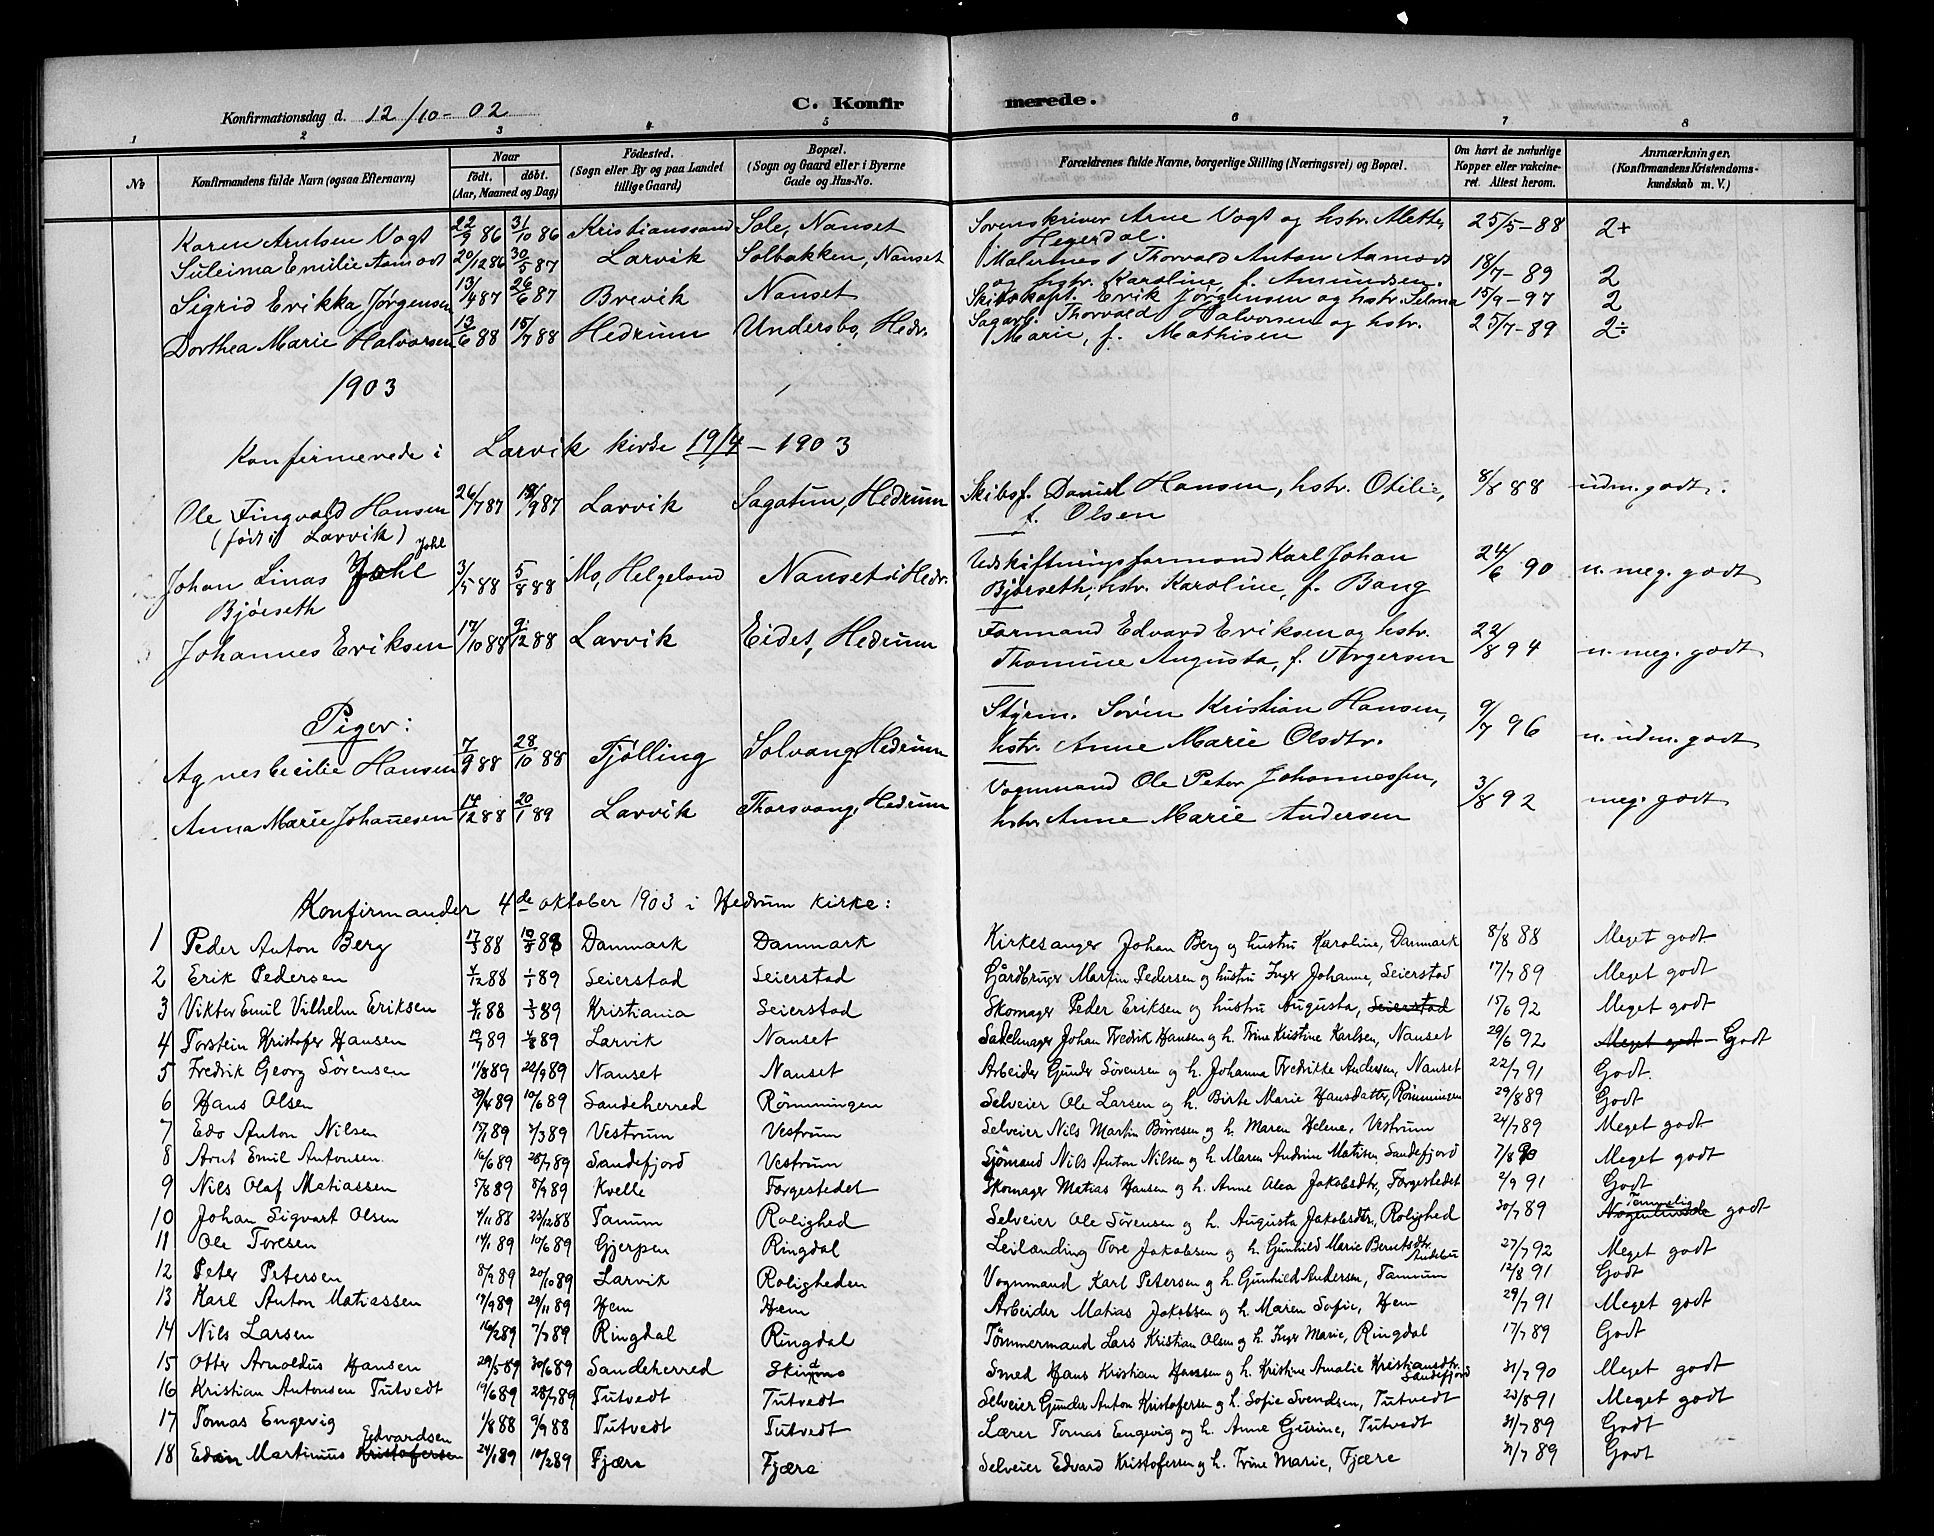 C. Konfirmerede.
Konfirmationsdag d. 12/10 - 02
1 2 3 4 5 6 7 8
No Konfirmandens fulde Navn (ogsaa Efternavn) Naar födt. döbt. (Aar, Maaned og Dag) Födested. (Sogn eller By og paa Landet tillige Gaard) Bopæl. (Sogn og Gaard eller i Byerne Gade og Hus-No. Forældrenes fulde Navne, borgerlige Stilling (Næringsvei) og Bopæl. Om havt de naturlige Kopper eller vakcineret. Attest herom. Anmærkninger. (Konfirmandens Kristendomskundskab m. V.)
Karen Arntsen Vogt 22/9 86 31/10 86 Kristianssand Sole, Nanset Sorenskriver Arne Vogt og hstr. Mette, Hegerdal. 25/5-88 2+
Suleima Emilie Aamodt 20/12 86 30/5 87 Larvik Solbakken, Nanset Malermest Thorvald Anton Aamodt og hstr. Karoline, f. Amundsen. 18/7-89 2
Sigrid Erikka Jørgensen 13/4 87 26/6 87 Brevik Nanset Skibskapt. Erik Jørgensen og hstr. Selma 15/9-97 2
Dorthea Marie Halvorsen 13/6 88 15/7 88 Hedrum Undersbo, Hedr. Sagarb. Thorvald Halvorsen og hstr. Marie, f. Mathisen 25/7-89 2÷
1903
Konfirmerede i Larvik kirke 19/4 - 1903
Ole Fingvald Hansen (født i Larvik) 26/7 87 18/9 87 Larvik Sagatun, Hedrum Skibsf. Daniel Hansen, hstr. Otilie, f. Olsen 8/8 88 udm. godt.
Johan Linas Johl Bjørseth 3/5 88 5/8 88 Mo, Helgeland Nanset i Hedr. Udskiftningsformand Karl Johan Bjørseth, hstr. Karoline, f. Bang 24/6 90 n. meg. godt
Johannes Eriksen 17/10 88 9/12 88 Larvik Eidet, Hedrum Formand Edvard Eriksen og hstr. Thomine Augusta, f. Torgersen 22/8 94 n. meg. godt
Piger:
Agnes Cecilie Hansen 7/9 88 28/10 88 Tjølling Solvang, Hedrum Styrm. Søren Kristian Hansen, hstr. Anne Marie Olsdtr. 9/7 96 n. udm. godt
Anna Marie Johanesen 14/12 88 20/1 89 Larvik Thorsvang, Hedrum Vognmand Ole Peter Johannessen, hstr. Anne Marie Andersen 3/8 92 meg. godt
Konfirmander 4de oktober 1903 i Hedrum kirke:
1 Peder Anton Berg 17/3 88 88 Danmark Danmark Kirkesanger Johan Berg og hustru Karoline, Danmark 8/8 88 Meget godt
2 Erik Pedersen 4/12 88 1/1 89 Seierstad Seierstad Gårdbruger Martin Pedersen og hustru Inger Johanne, Seierstad 17/7 89 Meget godt
3 Viktor Emil Vilhelm Eriksen 4/11 88 89 Kristiania Seierstad Skomager Peder Eriksen og hustru Augusta, Seierstad 15/6 92 Meget godt
4 Torstein Kristofer Hansen 89 4/8 89 Larvik Nanset Sadelmager Johan Fredrik Hansen og h. Trine Kristine Karlsen, Nanset 29/6 92 Meget godt - Godt
5 Fredrik Georg Sörensen 11/8 89 22/9 89 Nanset Nanset Arbeider Gunder Sörensen og h. Johanna Fredrikke Andersen, Nanset 22/7 91 Godt.
6 Hans Olsen 29/4 89 10/6 89 Sandeherred Römmingen Selveier Ole Larsen og h. Birte Marie Hansdatter, Römmingen 29/8 89 Godt
7 Edo Anton Nilsen 15/1 89 3/3 89 Vestrum Vestrum Selveier Nils Martin Börresen og h. Maren Helene, Vestrum 24/7 89 Meget godt
8 Arnt Emil Antonsen 16/6 89 28/7 89 Sandefjord Vestrum Sjömand Nils Anton Nilsen og h. Maren Andrine Matisen, Sandefjord 7/8 90 Meget godt
9 Nils Olaf Matiassen 5/8 89 8/9 89 Kvelle Færgestedet Skomager Matias Hansen og h. Anne Alea Jakobsdtr, Færgestedet 2/9 91 Godt
10 Johan Sigvart Olsen 4/11 88 23/12 88 Tanum Rolighed Selveier Ole Sörensen og h. Augusta Jakobsdtr, Rolighed 30/7 89 Nogenlunde Temmelig godt
11 Ole Toresen 14/1 89 10/6 89 Gjerpen Ringdal Leilænding Tore Jakobsen og h. Gunhild Marie Berntsdtr. Andebu 27/7 92 Meget godt
12 Peter Petersen 8/9 89 20/10 89 Larvik Roligheden Vognmand Karl Petersen og h. Gunhild Andersen, Tanum 12/8 91 Godt
13 Karl Anton Matiassen 17/9 89 29/11 89 Hem Hem Arbeider Matias Jakobsen og h. Maren Sofie, Hem 29/7 91 Meget godt
14 Nils Larsen 16/2 89 7/7 89 Ringdal Ringdal Tömmermand Lars Kristian Olsen og h. Inger Marie, Ringdal 17/7 89 Godt
15 Otter Arnoldus Hansen 29/5-89 30/6 89 Sandeherred Skindmo Smed Hans Kristian Hansen og h. Kristine Amalie Kristiansdtr. Sandefjord 31/7 90 Meget godt
16 Kristian Antonsen Tutvedt 19/6 89 28/7 89 Tutvedt Tutvedt Selveier Gunder Anton Kristofersen og h. Sofie Svendsen, Tutvedt 23/8-91 Meget godt
17 Tomas Engevig 1/8 88 9/9 88 Tutvedt Tutvedt Lærer Tomas Engevig og h. Anne Gurine, Tutvedt 31/7 89 Godt
18 Edvin Martinius Kristofersen Edvardsen 24/1 89 10/2 89 Fjære Fjære Selveier Edvard Kristofersen og h. Trine Marie, Fjære 31/7 89 Godt